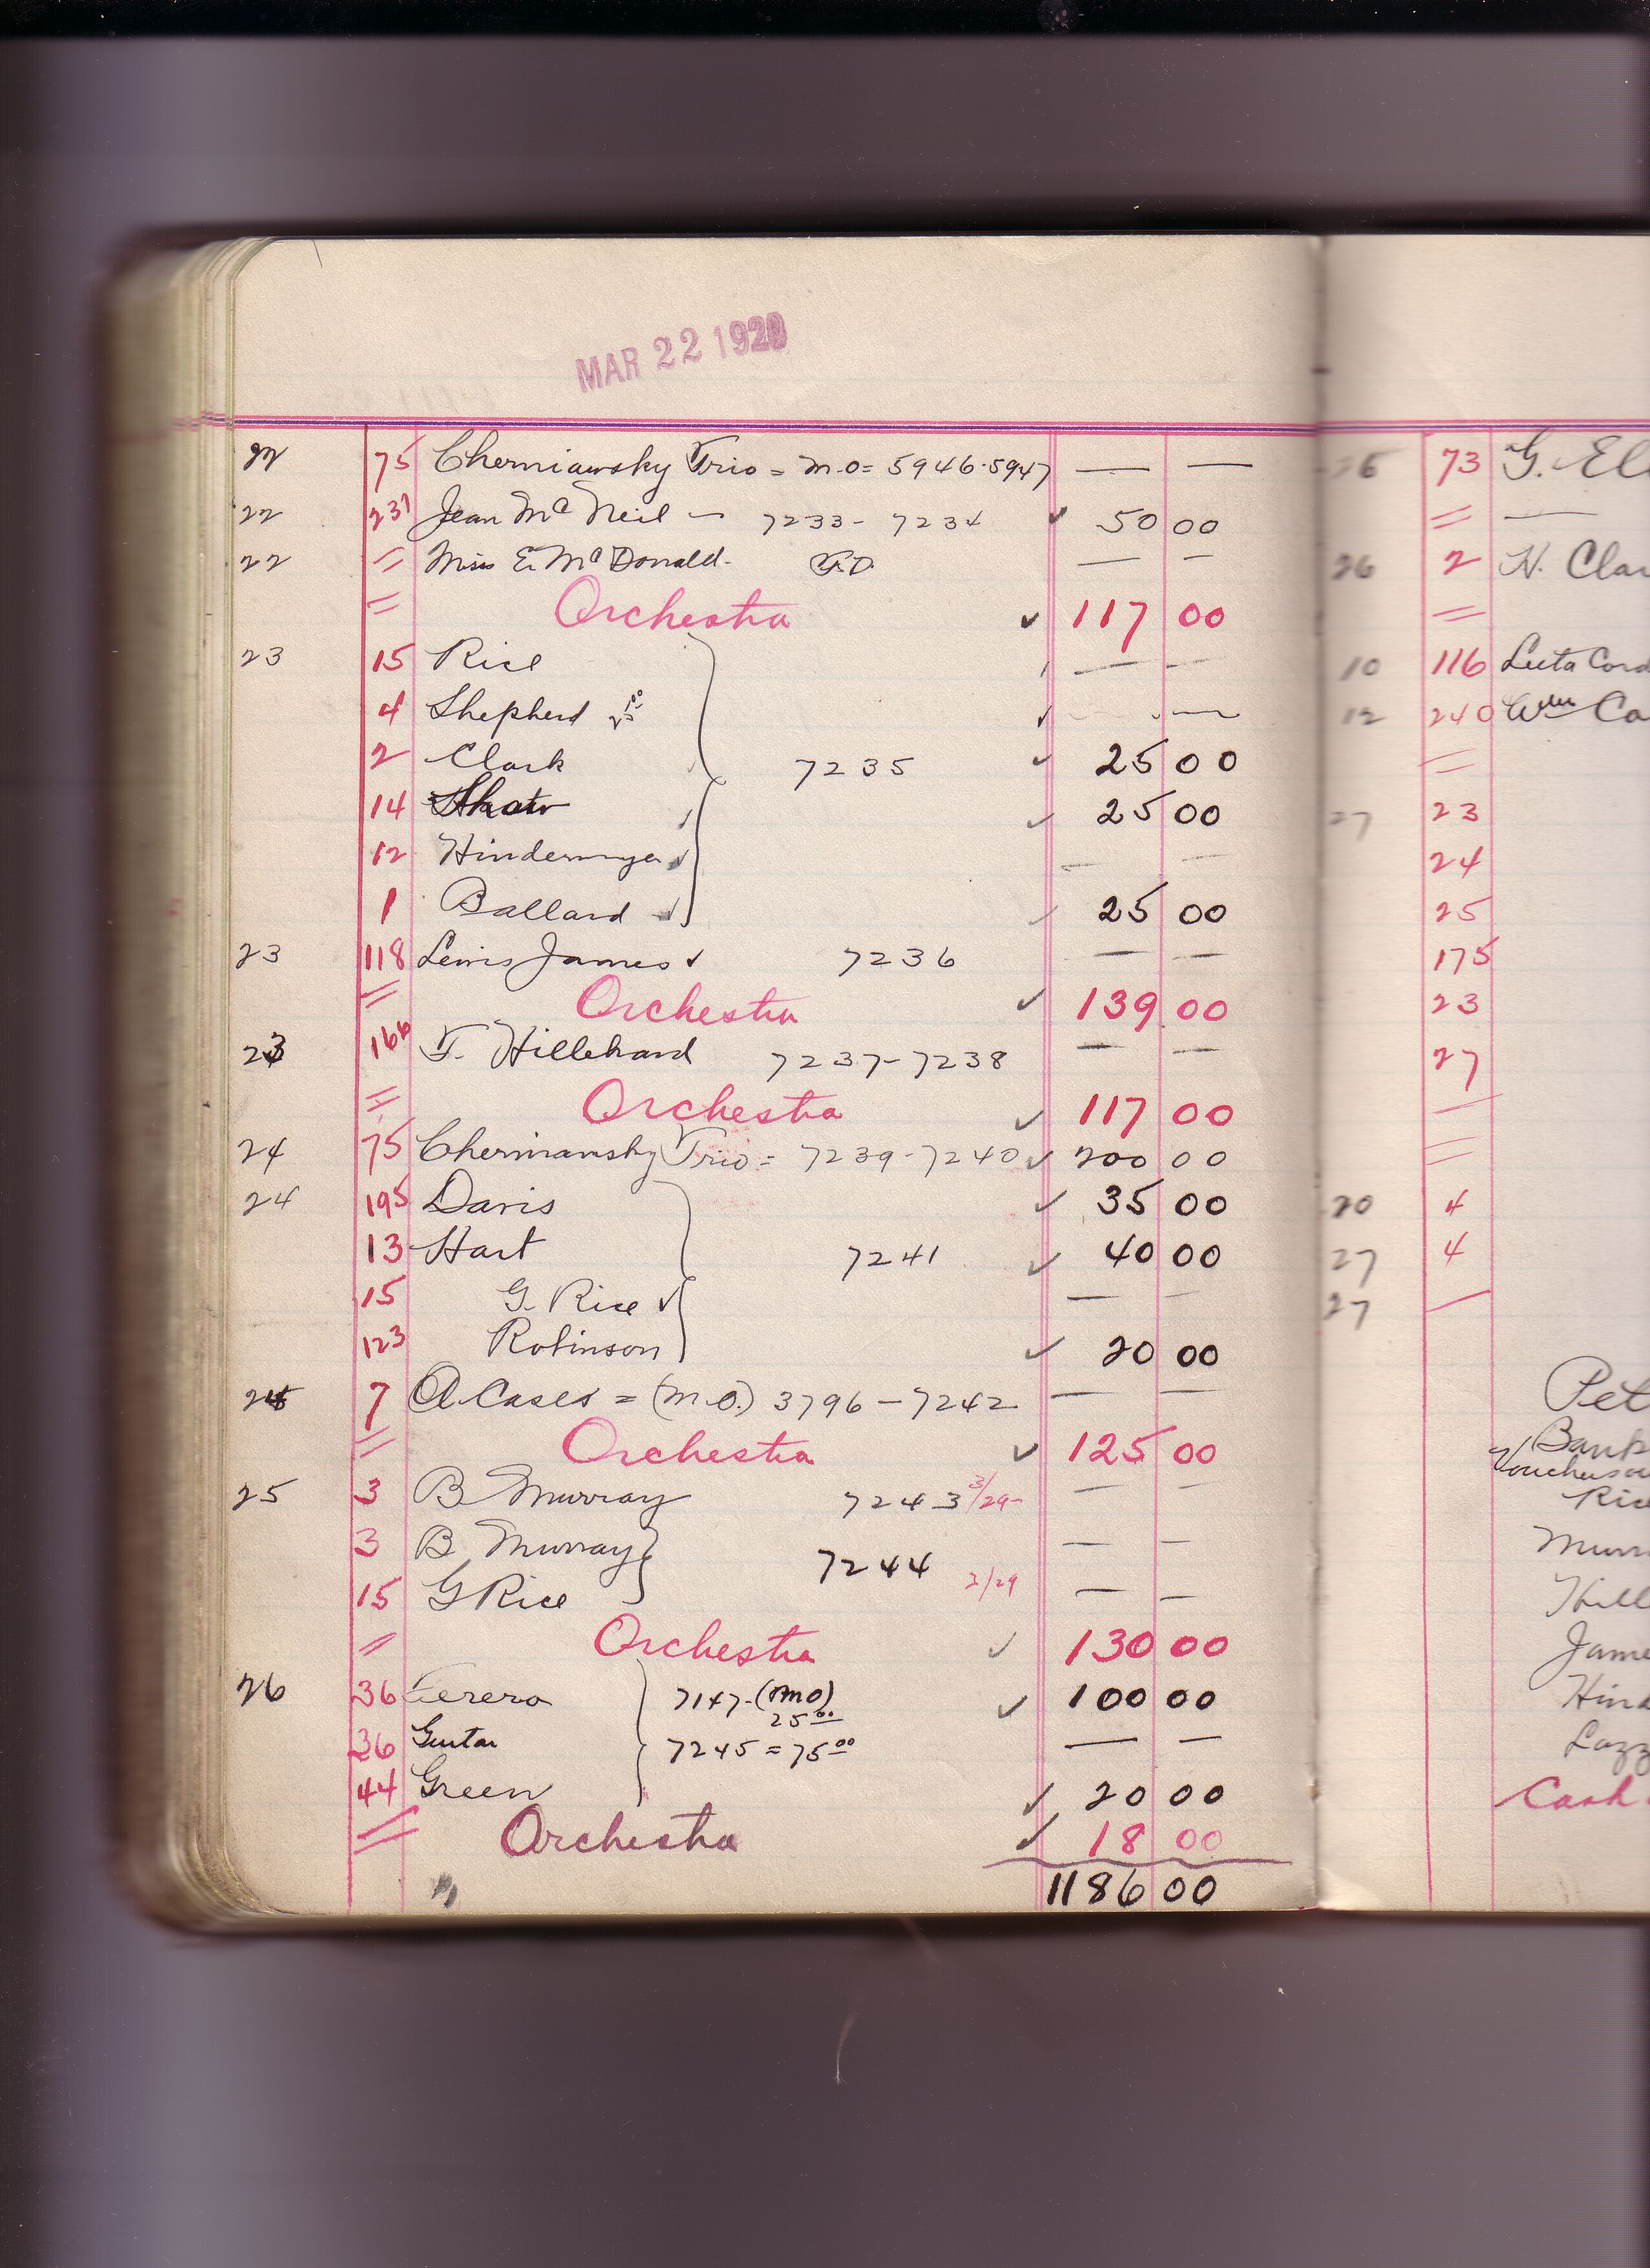 MAR 22 1920
22 75 Cherniawsky Trio = M.O = 5946-5947 — —
22 237 Jean Mc Neil — 7233 - 7234 ✓ 50 00
22 = Miss E. McDonald. — —
= Orchestra ✓ 117 00
23 15 Rice — —
4 Shepherd ✓ — —
2 Clark 7235 ✓ 25 00
14 Shaw ✓ ✓ 25 00
12 Hindermyer ✓ — —
1 Ballard ✓ ✓ 25 00
23 118 Lewis James ✓ 7236 — —
= Orchestra ✓ 139 00
23 166 F. Hillebrand 7237-7238 — —
= Orchestra ✓ 117 00
24 75 Cherniawsky Trio = 7239-7240 ✓ 200 00
24 195 Davis ✓ 35 00
13 Hart 7241 ✓ 40 00
15 G. Rice ✓ — —
123 Robinson ✓ 20 00
7 A Cases = (M.O.) 3796 - 7242 — —
= Orchestra ✓ 125 00
25 3 B Murray 7243 3/29 — —
3 B Murray — —
7244
15 G Rice 3/29 — —
= Orchestra ✓ 130 00
26 36 Ferera 7147-(MO) ✓ 100 00
25 00
36 7245 = 75 00 — —
44 Green ✓ 20 00
= Orchestra ✓ 18 00
1186 00
26 73 G. El
= —
26 2 H. Clar
=
10 116 Leeta Cord
12 240 Wm Ca
=
27 23
24
25
175
23
27
—
=
20 4
27 4
27 —
Pet
Bank
Vouchers
Rice
Murr
Hill
Jame
Hind
Lazz
Cash